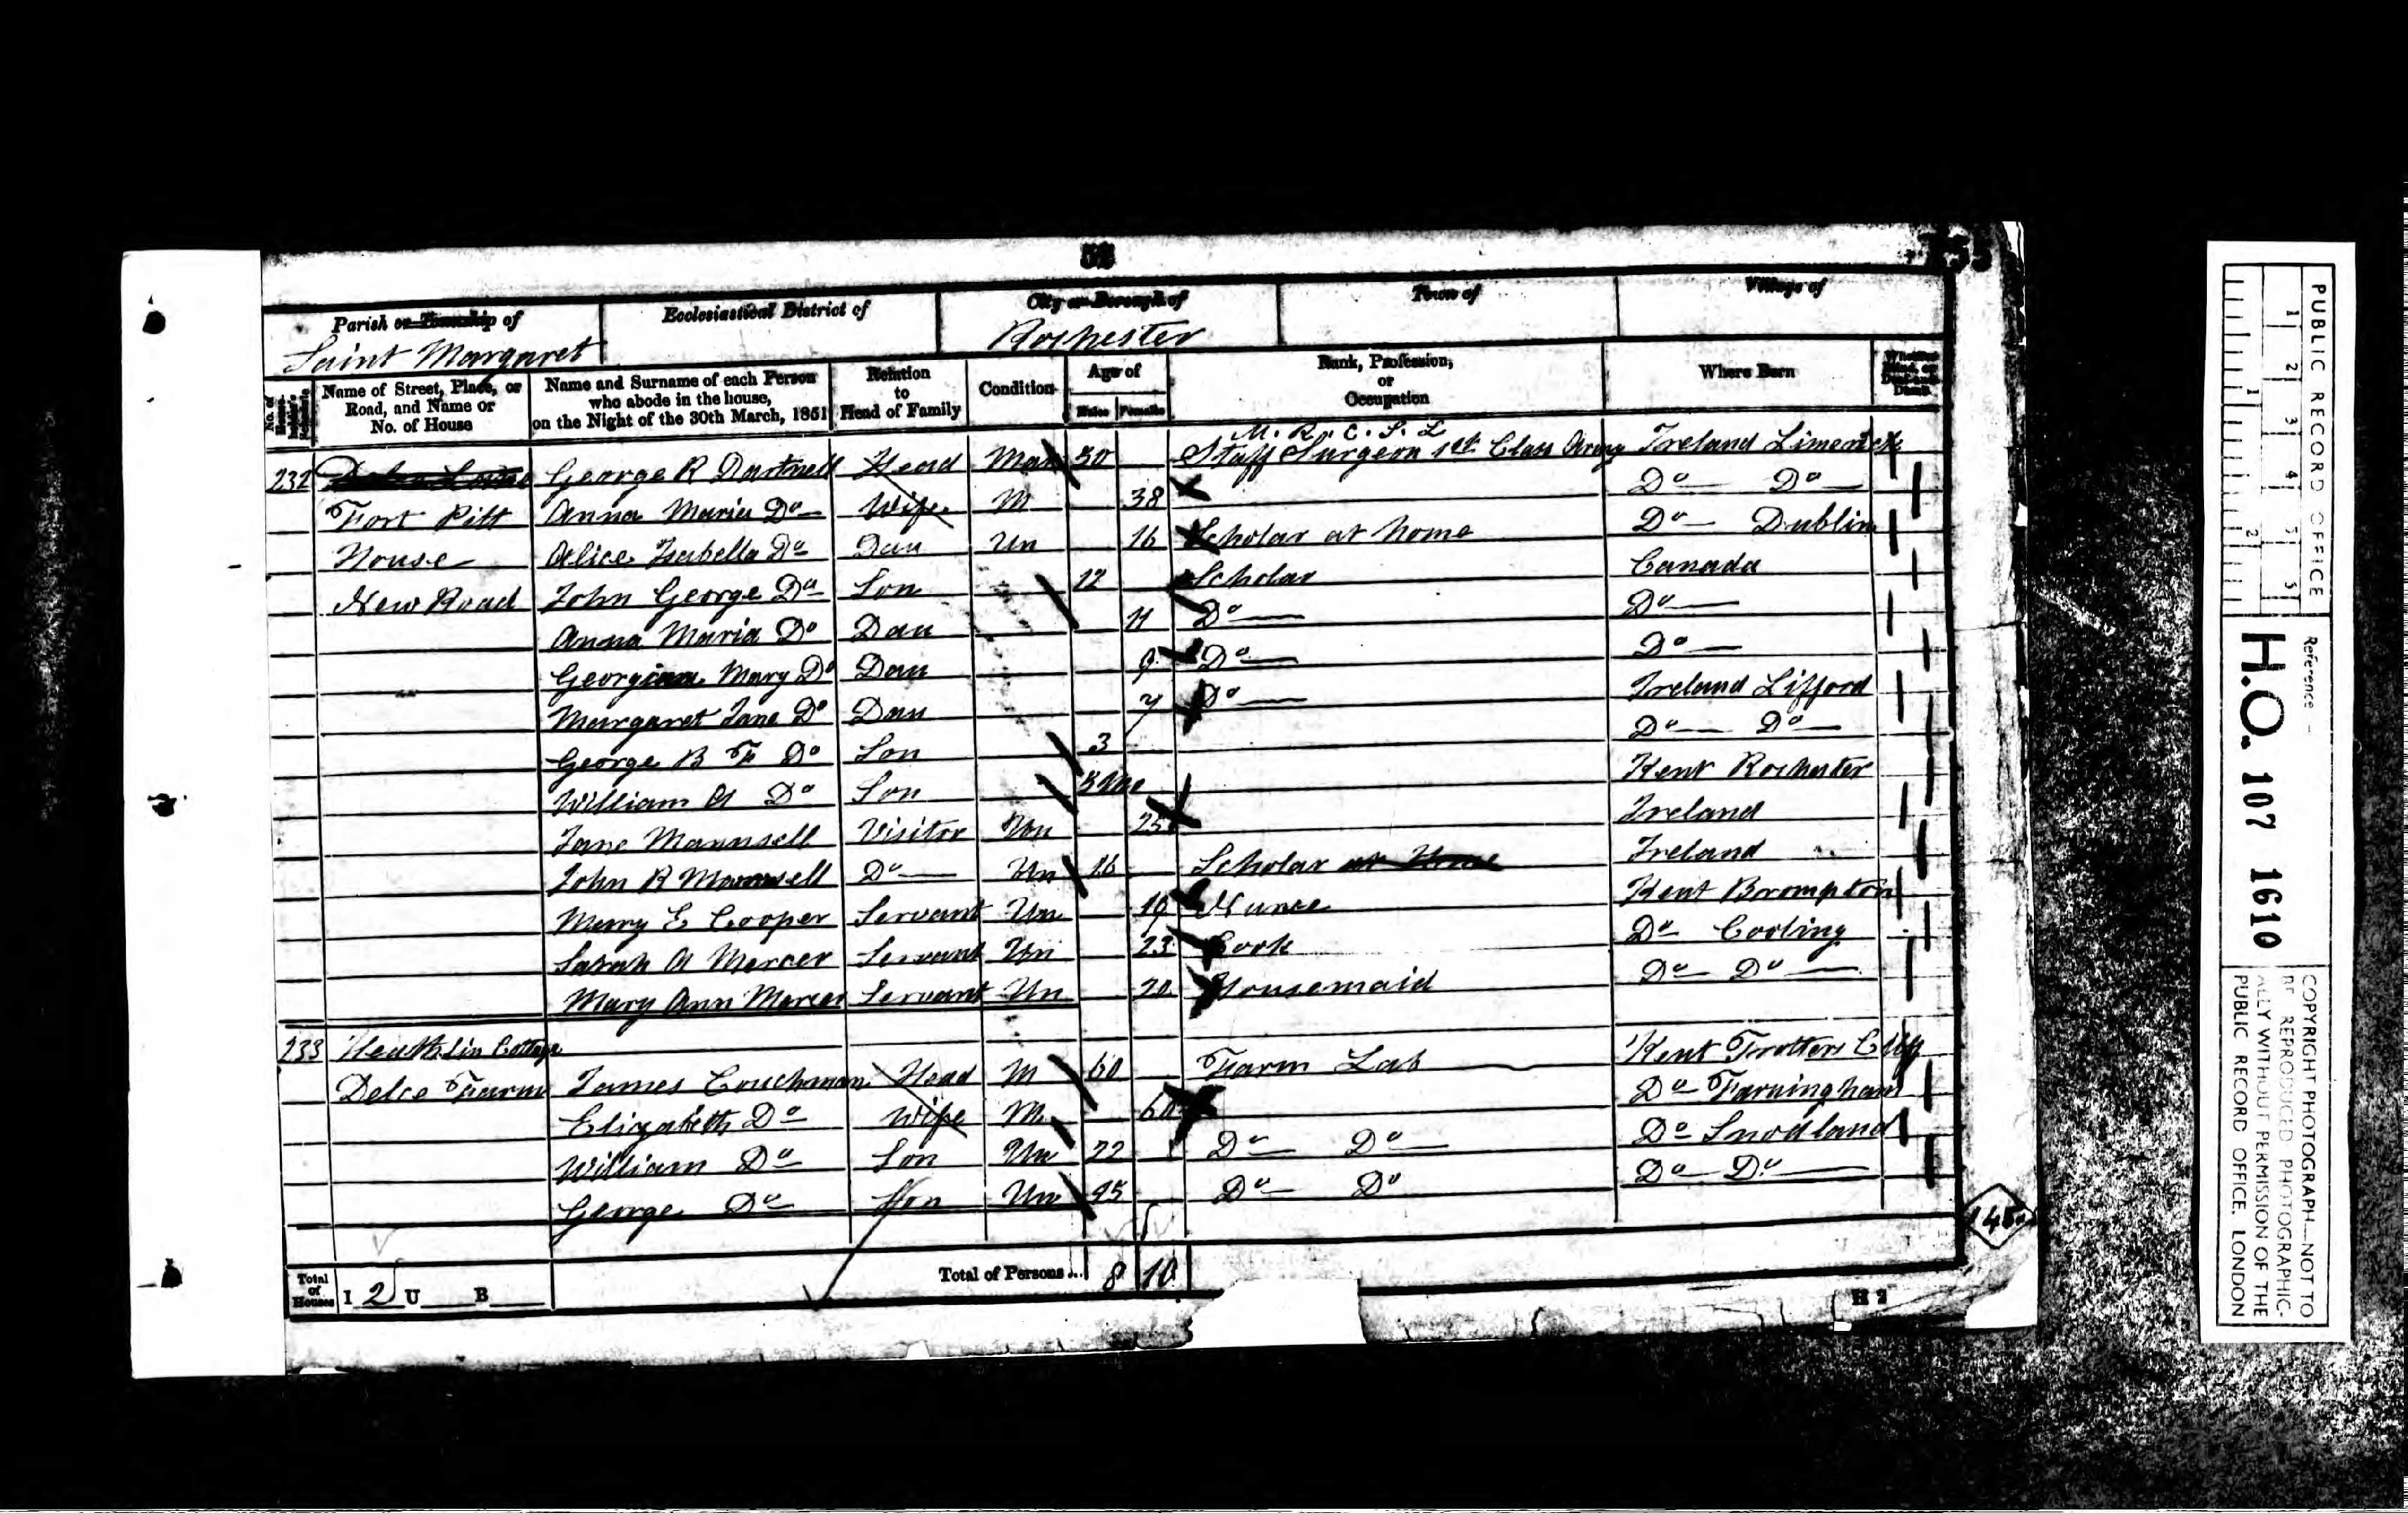 53
Parish or Township of
Saint Margaret
Ecclesiastical District of
City or Borough of
Rochester
Town of
Village of
Name of Street, Place, or Road, and Name or No. of House
Name and Surname of each Person who abode in the house, on the Night of the 30th March, 1851
Relation to Head of Family
Condition
Age of
Males Females
Rank, Profession, or Occupation
Where Born
M. R. C. S. L
232 George R Dartnell Head Mar 50 Staff Surgeon 1st Class Army Ireland Limerick
Fort Pitt Anna Maria Do Wife M 38 Do Do
House Alice Isabella Do Dau Un 16 Scholar at home Do Dublin
New Road John George Do Son 12 Scholar Canada
Anna Maria Do Dau 11 Do Do
Georgiana Mary Do Dau 9 Do Do
Margaret Jane Do Dau 7 Do Ireland Lifford
George B F Do Son 3 Do Do
William A Do Son 3 Mo Kent Rochester
Jane Maunsell Visitor Un 25 Ireland
John R Maunsell Do Un 16 Scholar at Home Ireland
Mary E Cooper Servant Un 19 Nurse Kent Brompton
Sarah A Mercer Servant Un 23 Cook Do Cooling
Mary Ann Mercer Servant Un 20 Housemaid Do Do
233 Cottage
Delce Farm James Couchman Head M 60 Farm Lab Kent Trotters Cliff
Elizabeth Do Wife M 60 Do Farningham
William Do Son Un 22 Do Do Do Snodland
George Do Son Un 25 Do Do Do Do
Total of Houses I 2 U B
Total of Persons... 8 10
H 2
PUBLIC RECORD OFFICE
1 2 3 4 5
1 2
Reference -
H.O. 107 1610
COPYRIGHT PHOTOGRAPH—NOT TO
BE REPRODUCED PHOTOGRAPHIC-
ALLY WITHOUT PERMISSION OF THE
PUBLIC RECORD OFFICE, LONDON